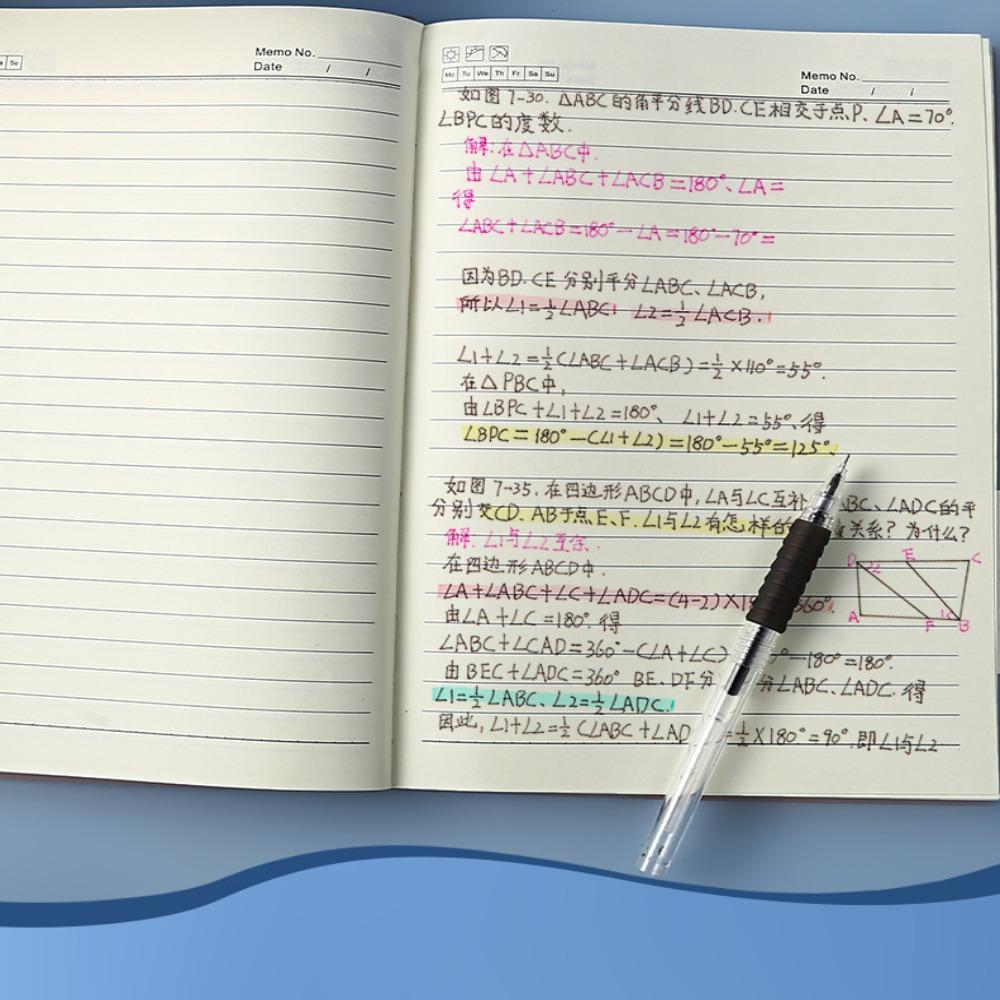 Su
Memo No.
Date / /
Mo Tu We Th Fr Sa Su
Memo No.
Date / /
如图7-30.△ABC的角平分线BD.CE相交于点P、∠A=70°.
∠BPC的度数.
解:在△ABC中.
由∠A+∠ABC+∠ACB=180°、∠A=
得
∠ABC+∠ACB=180°-∠A=180°-70°=
因为BD.CE分别平分∠ABC、∠ACB,
所以∠1=½∠ABC ∠2=½∠ACB.
∠1+∠2=½(∠ABC+∠ACB)=½×110°=55°.
在△PBC中,
由∠BPC+∠1+∠2=180°、∠1+∠2=55°、得
∠BPC=180°-(∠1+∠2)=180°-55°=125°.
如图7-35.在四边形ABCD中,∠A与∠C互补 BC、∠ADC的平
分别交CD、AB于点E、F.∠1与∠2有怎样的 关系?为什么?
解:∠1与∠2互余.
在四边形ABCD中.
∠A+∠ABC+∠C+∠ADC=(4-2)×18 360°.
由∠A+∠C=180°.得
∠ABC+∠CAD=360°-(∠A+∠C) °-180°=180°.
由BEC+∠ADC=360° BE、DF分 分∠ABC、∠ADC.得
∠1=½∠ABC、∠2=½∠ADC.
因此,∠1+∠2=½(∠ABC+∠AD =½×180°=90°.即∠1与∠2
D 2 E C
A F 1 B